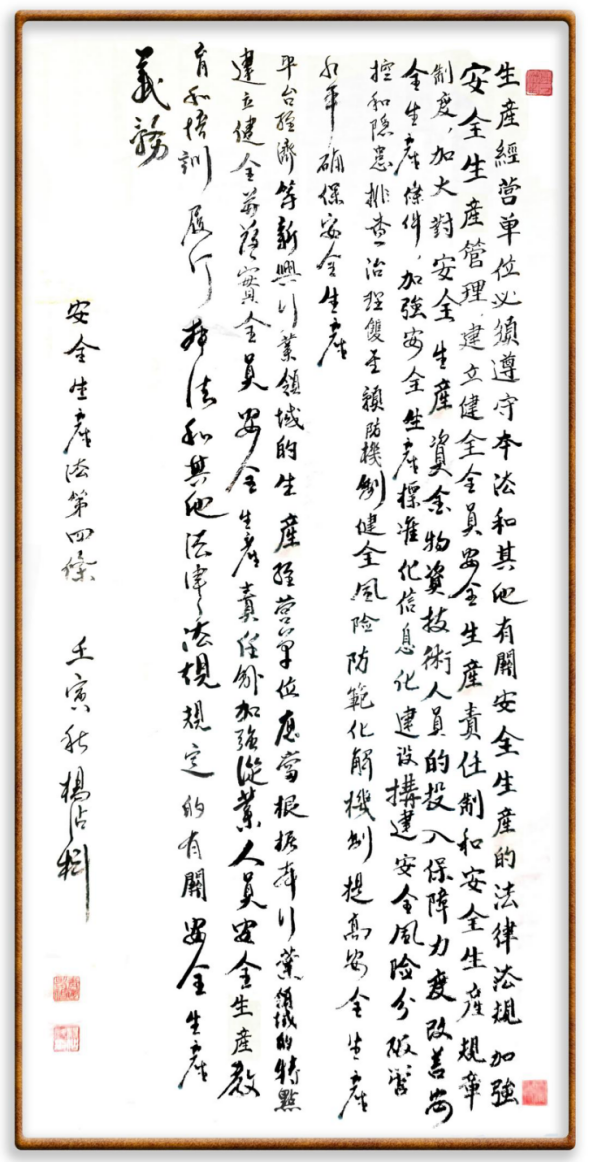 生產經营單位必須遵守本法和其他有關安全生產的法律法規加強
安全生產管理,建立健全全員安全生產責任制和安全生產規章
制度,加大對安全生產資金物資技術人員的投入保障力度改善安
全生產條件,加強安全生產標准化信息化建设構建安全風险分級管
控和隐患排查治理雙重預防機制健全風险防範化解機制提高安全生產
水平確保安全生產
平台經濟等新興行業領域的生產經营單位應當根據本行業領域的特點
建立健全並落實全員安全生產責任制加強從業人員安全生產教
育和培訓履行本法和其他法律、法規規定的有關安全生產
義務
安全生產法第四條 壬寅秋楊占